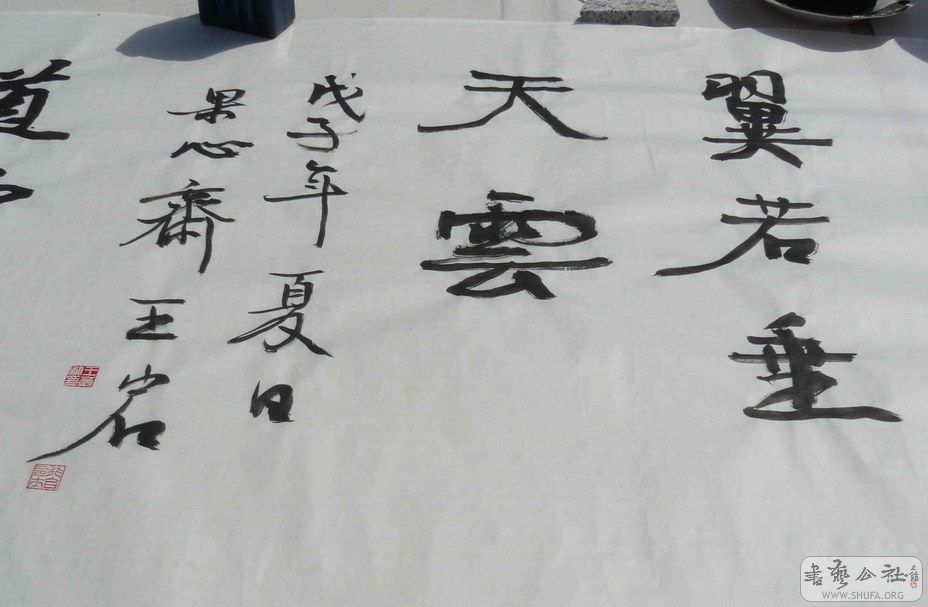 翼若垂
天雲
戊子年夏日
果心齋王岩
書藝公社
WWW.SHUFA.ORG